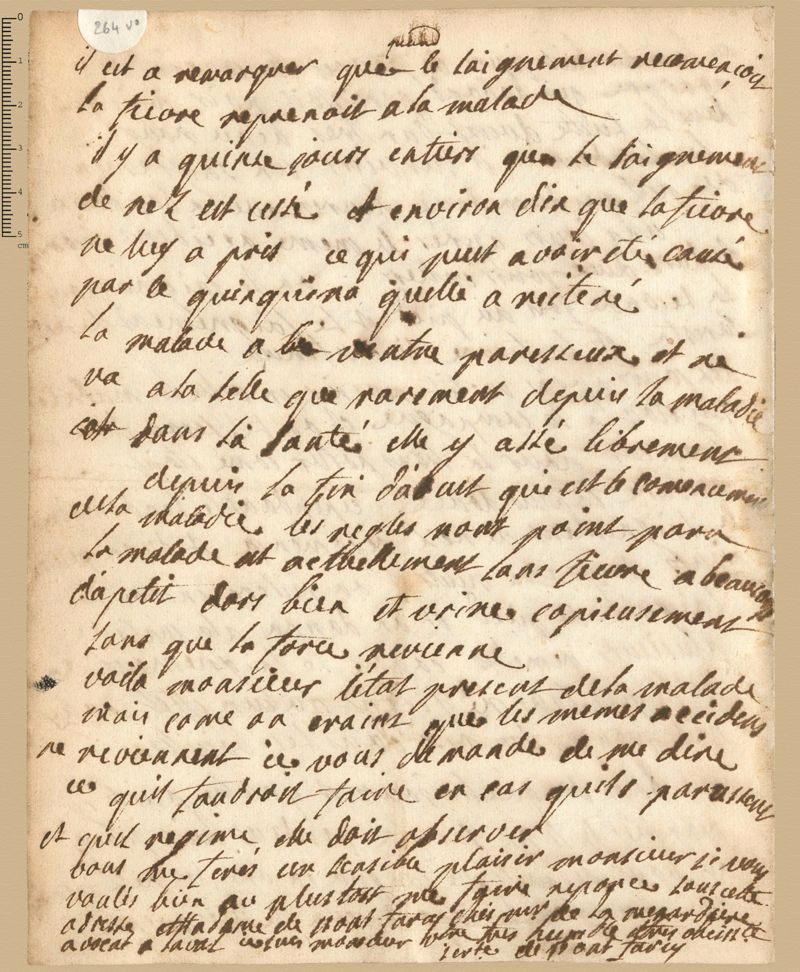 264 vo
quand
il est a remarquer que le saignement recomençoit
la fievre reprenoit a la malade
il y a quinze jours entiers que le saignement
de nez est cessé et environ dix que la fievre
ne luy a pris ce qui peut avoir été causé
par le quinquina quelle a reiteré
la malade a le ventre paresseux et ne
va a la selle que rarement depuis la maladie
dans la santé elle y allé librement
depuis la fin daoust qui est le comencement
de la maladie les regles nont point paru
la malade est actuellement sans fievre a beaucoup
dapetit dors bien et urine copieusement
sans que la force revienne
voila monsieur l'état present de la malade
mais come on craint que les memes accidens
ne reviennent ie vous demande de me dire
ce quil faudroit faire en cas quils parussent
et quel regime elle doit observer
vous me ferés un sensible plaisir monsieur si vous
voulés bien au plustost me faire reponce sous cette
adresse a Madame de pont farcy chés mr de la megnardiere
avocat a laval ie suis monsieur votre tres humble et tres obeissante
serte de pont farcy